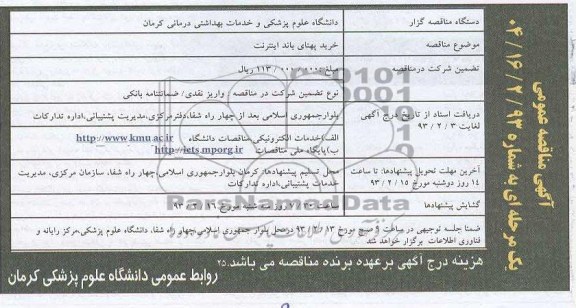 آگهی مناقصه عمومی
یک مرحله ای به شماره ۹۳ / ۲ / ۱۶ / ۰۴
دستگاه مناقصه گزار
دانشگاه علوم پزشکی و خدمات بهداشتی درمانی کرمان
موضوع مناقصه
خرید پهنای باند اینترنت
تضمین شرکت درمناقصه
ریال
نوع تضمین شرکت در مناقصه / واریز نقدی/ ضمانتنامه بانکی
دریافت اسناد از تاریخ درج آگهی
لغایت ۳ / ۲ / ۹۳
بلوارجمهوری اسلامی بعد از چهار راه شفا،دفترمرکزی،مدیریت پشتیبانی،اداره تدارکات
الف)خدمات الکترونیکی،مناقصات دانشگاه http://www.kmu.ac.ir
ب)پایگاه ملی مناقصات http://iets.mporg.ir
آخرین مهلت تحویل پیشنهادها: تا ساعت
۱۴ روز دوشنبه مورخ ۱۵ / ۲ / ۹۳
محل تسلیم پیشنهادها: کرمان بلوارجمهوری اسلامی،چهار راه شفا، سازمان مرکزی، مدیریت
خدمات پشتیبانی،اداره تدارکات
گشایش پیشنهادها
ParsNamadData
ضمنا جلسه توجیهی در ساعت ۹ صبح مورخ ۱۳ / ۲ / ۹۳ درمحل بلوار جمهوری اسلامی،چهار راه شفا، دانشگاه علوم پزشکی،مرکز رایانه و
فناوری اطلاعات برگزار خواهد شد
هزینه درج آگهی برعهده برنده مناقصه می باشد.۲۵
روابط عمومی دانشگاه علوم پزشکی کرمان